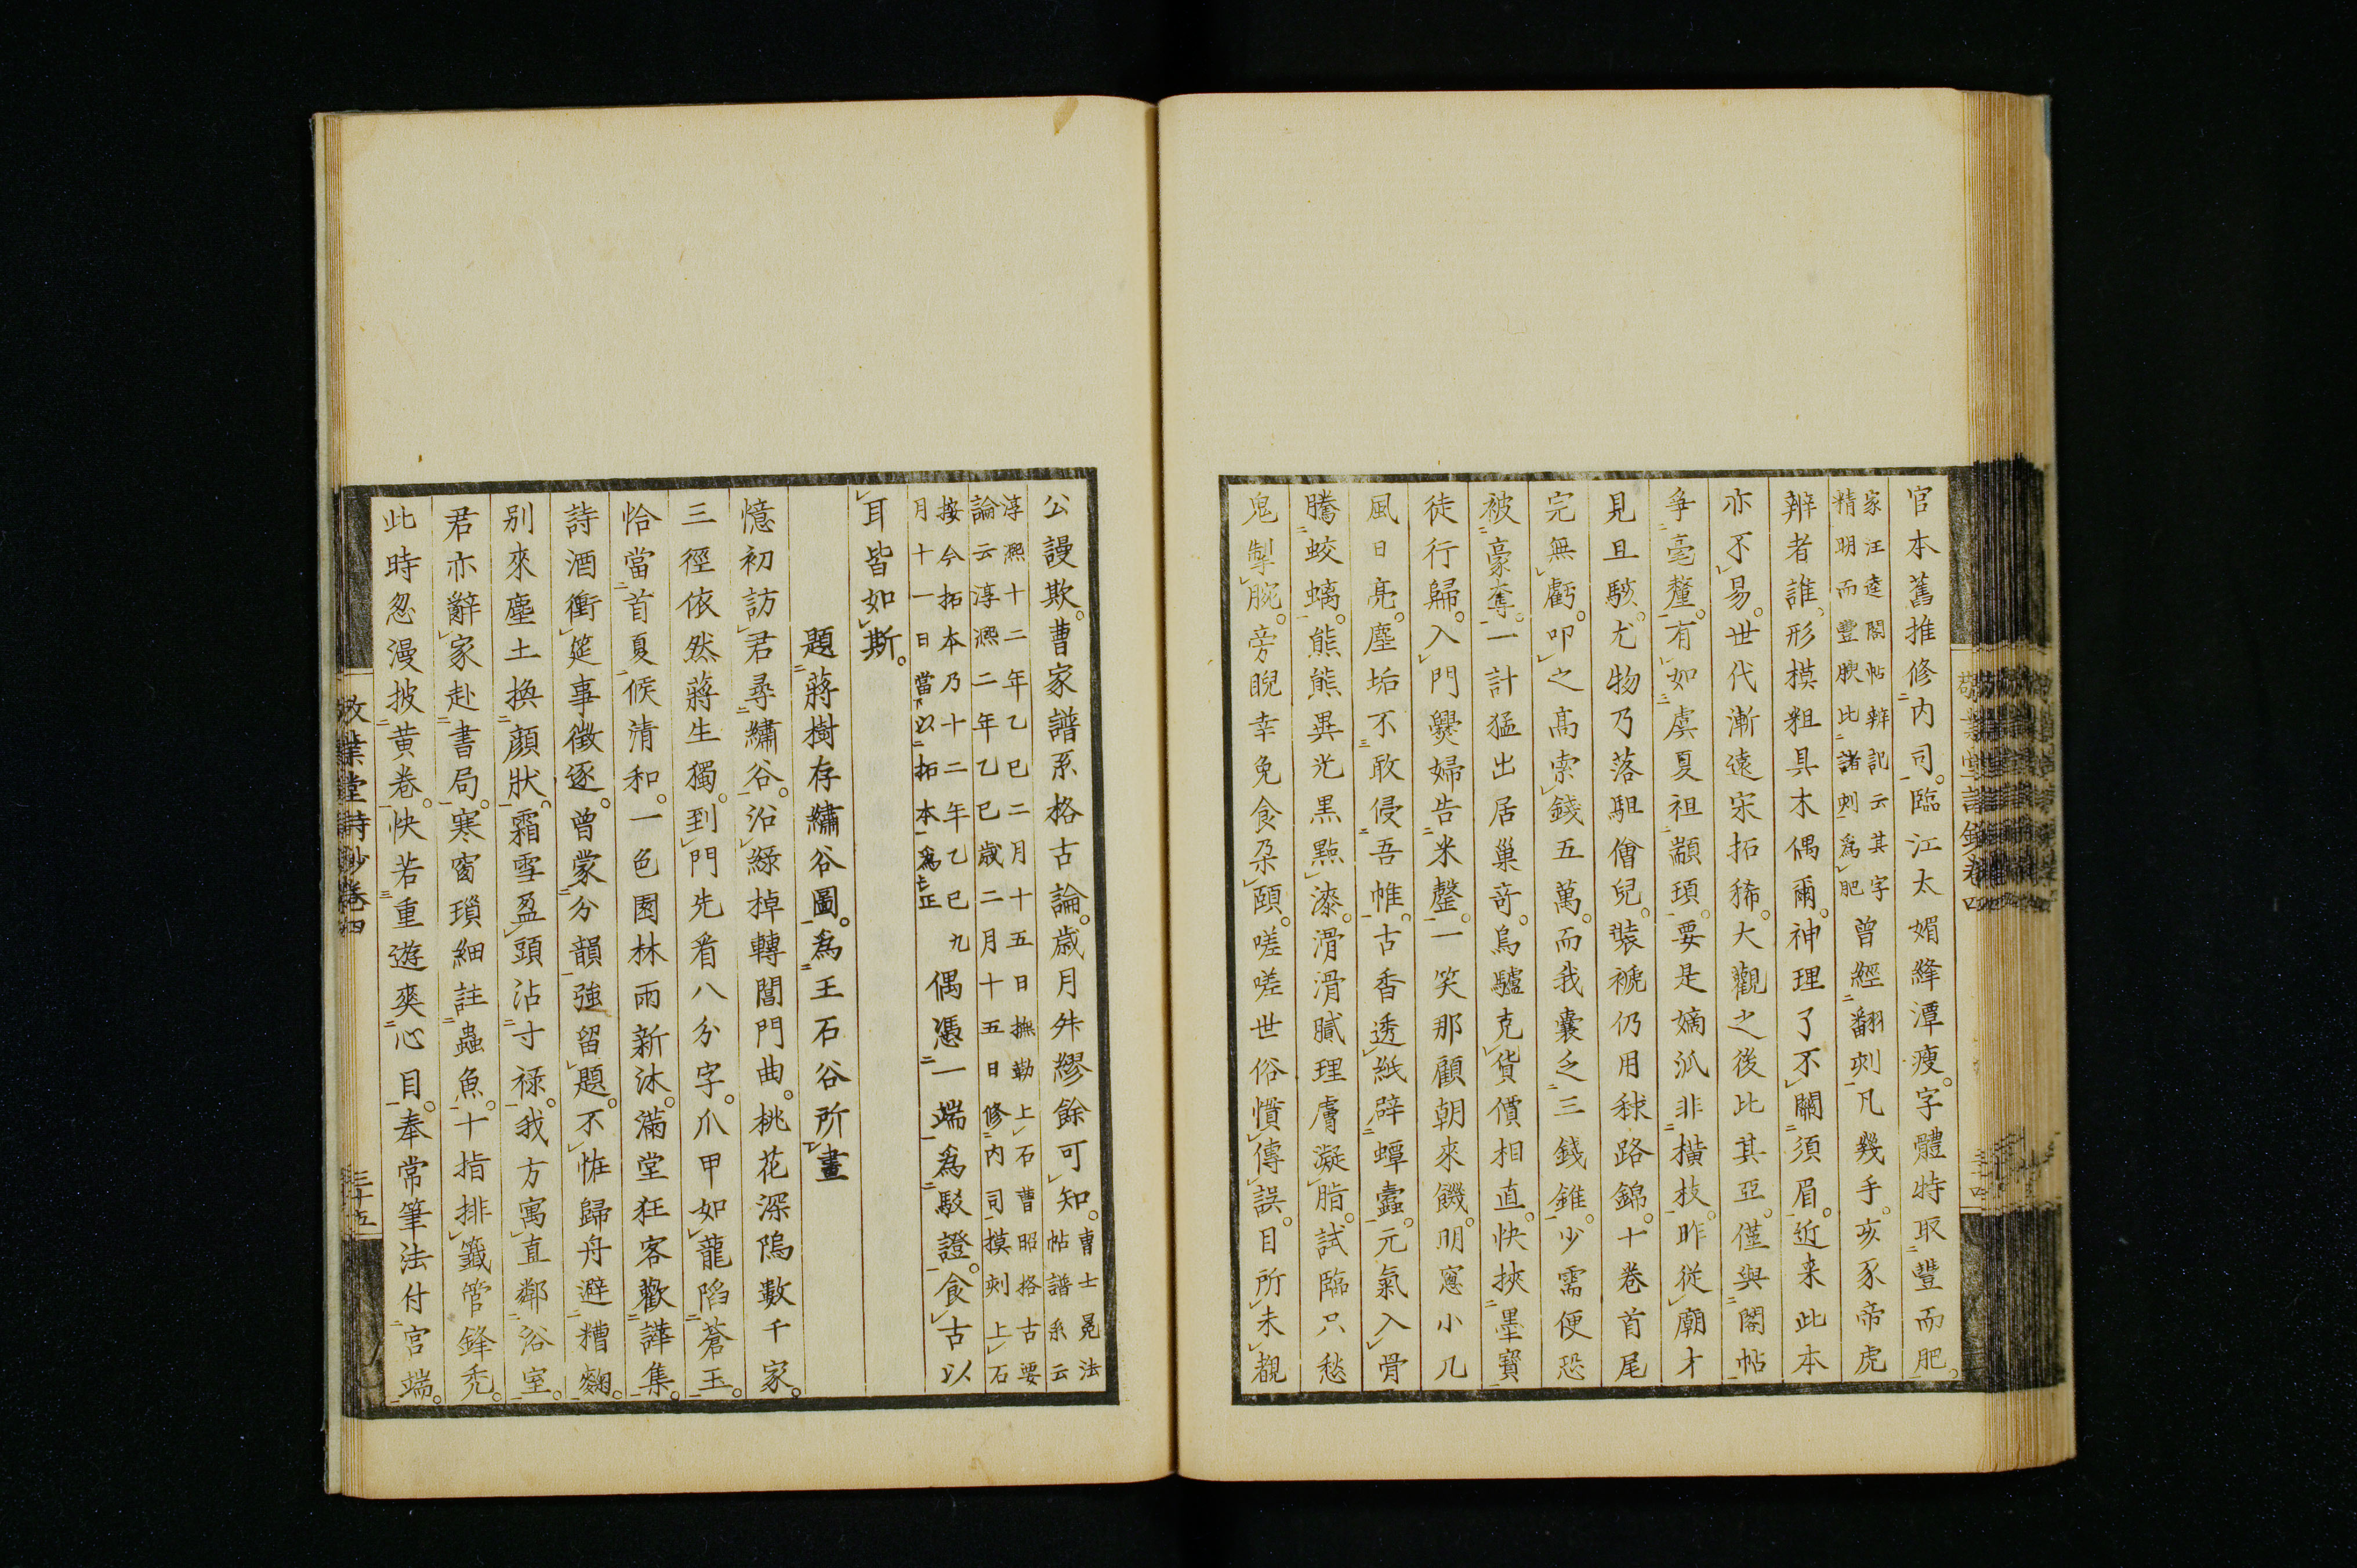 官本舊推修内司。臨江太媚絳潭瘦。字體特取豐而肥。
家汪逵閣帖辨記云其字
精明而豐腴比諸刻爲肥
曾經翻刻凡幾手。亥豕帝虎
辨者誰。形模粗具木偶爾。神理了不關須眉。近来此本
亦不易。世代漸遠宋拓稀。大觀之後此其亞。僅與閣帖
爭毫釐。有如虞夏祖顓頊。要是嫡派非橫枝。昨從廟才
見且駭。尤物乃落駔儈兒。裝褫仍用秘路錦。十卷首尾
完無虧。叩之髙索錢五萬。而我囊乏三錢錐。少需便恐
被豪奪。一計猛出居巢奇。烏驢克貨價相直。快挾墨寳
徒行歸。入門爨婦告米罄。一笑那顧朝來饑。明窓小几
風日亮。塵垢不敢侵吾帷。古香透紙辟蟫蠹。元氣入骨
騰蛟螭。熊熊異光黒點漆。滑滑膩理膚凝脂。試臨只愁
鬼掣腕。旁睨幸免食朶頤。嗟嗟世俗憒傳誤。目所未覩
公謾欺。曹家譜系格古論。歳月舛繆餘可知。
曹士冕法
帖譜系云
淳熈十二年乙巳二月十五日撫勒上石曹昭格古要
論云淳熈二年乙巳歳二月十五日修内司摸刻上石
按今拓本乃十二年乙巳九
月十一日當以拓本爲正
偶憑一端爲駁證。食古以
耳皆如斯。
題蔣樹存繡谷圖。爲王石谷所畫
憶初訪君尋繡谷。沿緑棹轉閶門曲。桃花深隖數千家。
三徑依然蔣生獨。到門先看八分字。爪甲如龍陷蒼玉。
恰當首夏候清和。一色園林雨新沐。滿堂狂客歡譁集。
詩酒衝筵事徴逐。曾蒙分韻強留題。不恠歸舟避糟麴。
别來塵土換顔狀。霜雪盈頭沾寸禄。我方寓直鄰浴室。
君亦辭家赴書局。寒窗瑣細註蟲魚。十指排籤管鋒禿。
此時忽漫披黄卷。快若重遊爽心目。奉常筆法付宫端。
敬業堂詩鈔卷四
三十五